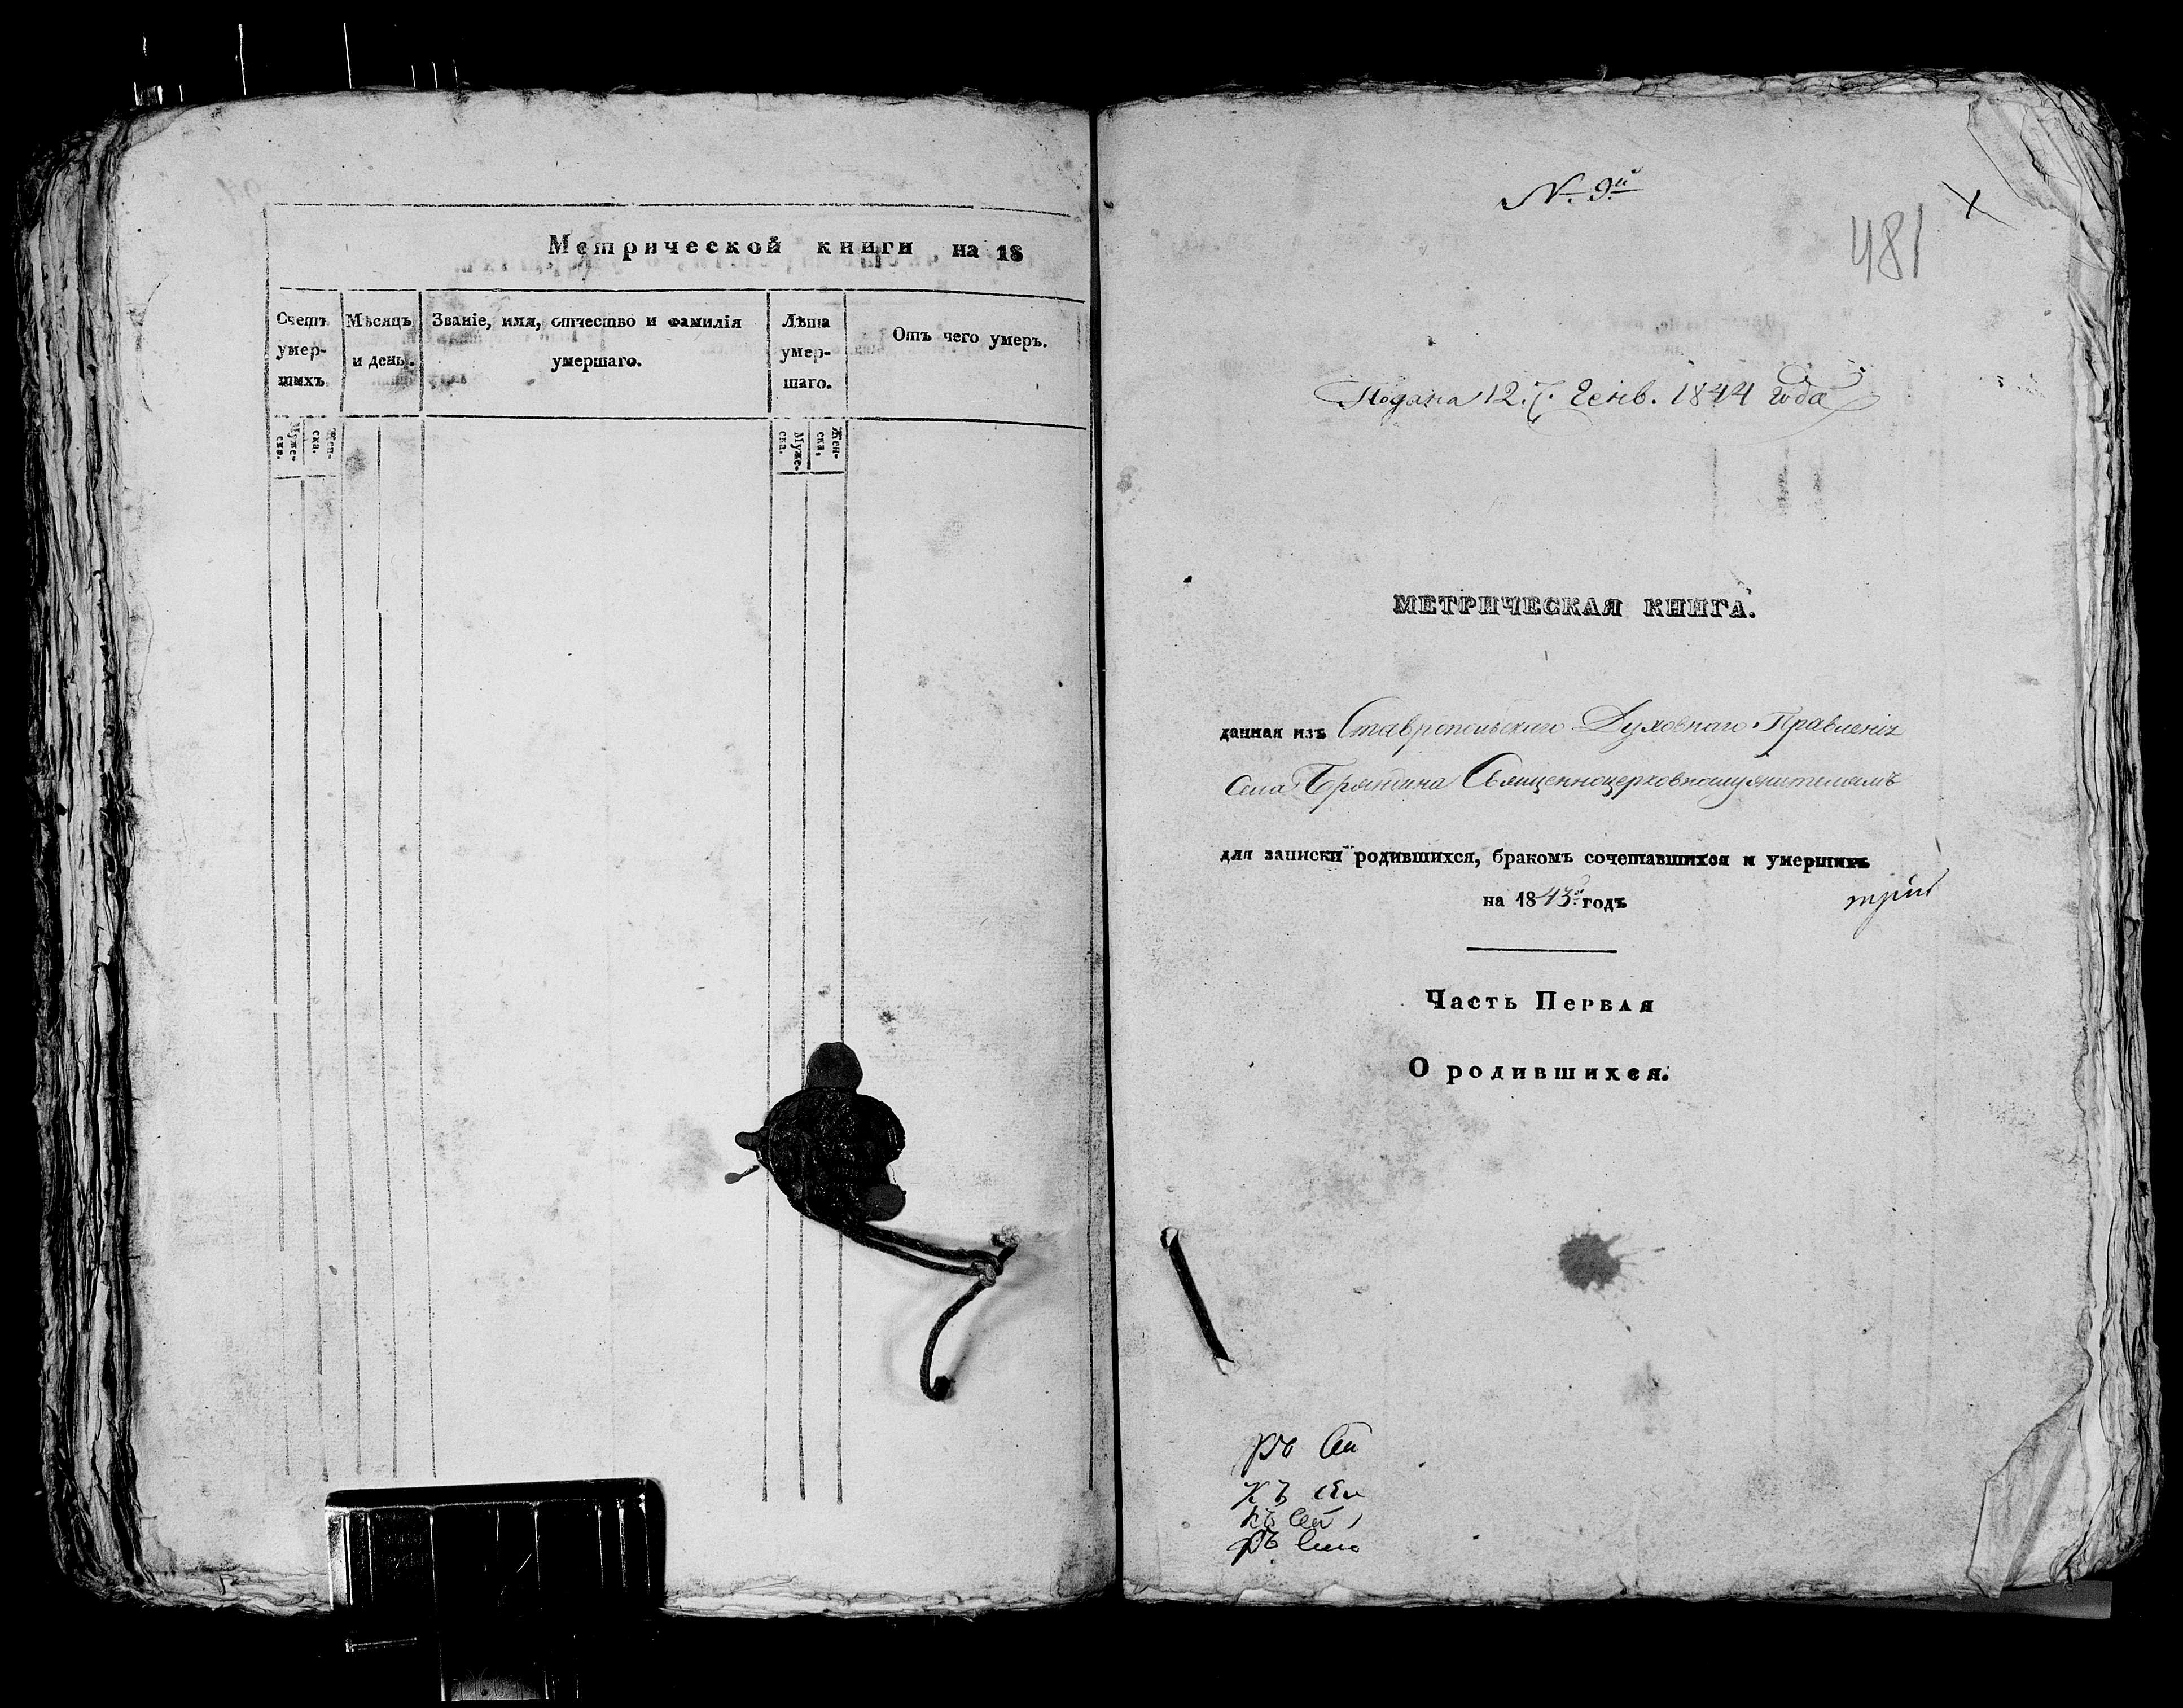 Метрической книги на 18
Счетъ умер- шихъ
Мѣсяцъ и день.
Званіе, имя, отчество и фамилія умершаго.
Лѣта умер- шаго.
Отъ чего умеръ.
Муже- ска.
Жен- ска.
Муже- ска.
Жен- ска.
№ 9й
481
Подана 12. Генв. 1844 года
МЕТРИЧЕСКАЯ КНИГА.
данная изъ Ставропольскаго Духовнаго Правленія
Села Бряндина Священноцерковнослужителямъ
для записки родившихся, бракомъ сочетавшихся и умершихъ
на 1843й годъ
Часть Первая
О родившихся.